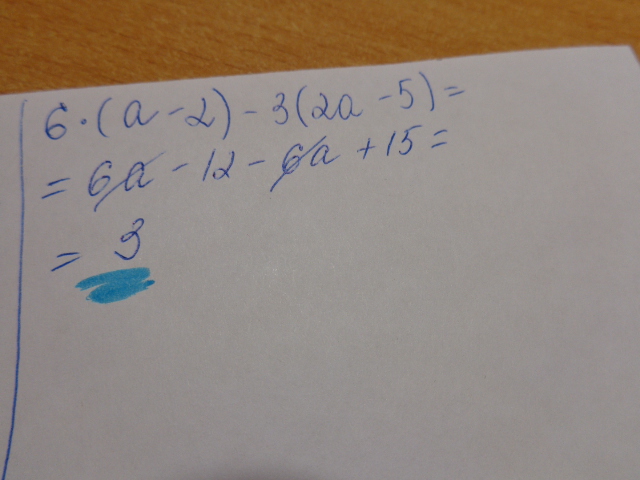 6·(a-2)-3(2a-5)=
=6a-12-6a+15=
=3